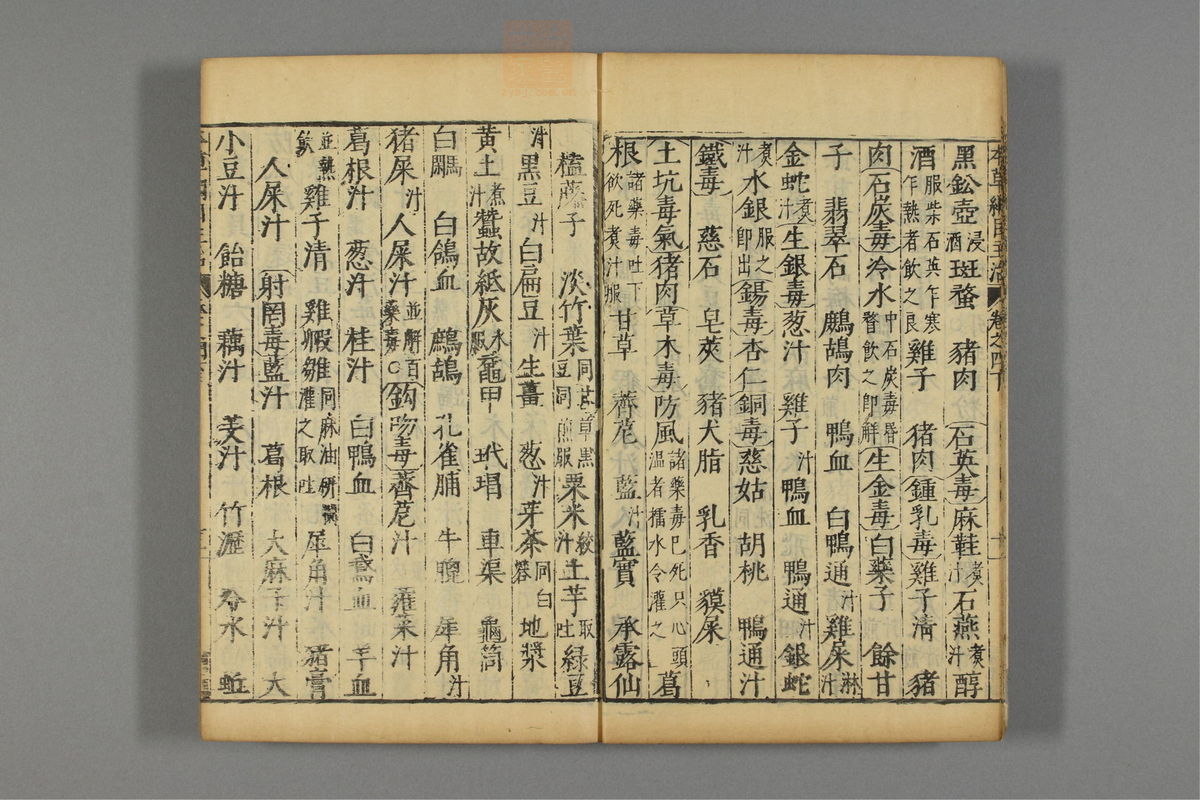 黑鈆壺浸酒斑蝥　豬肉（石英毒）麻鞋煮汁石燕煮汁醇
酒服柴石英乍寒乍熱者飲之良雞子　豬肉（鍾乳毒）雞子清　豬
肉（石炭毒）冷水中石炭毒昏瞀飲之即解（生金毒）白藥子　餘甘
子　翡翠石　鷓鴣肉　鴨血　白鴨通汁雞屎淋汁
金蛇煮汁（生銀毒）葱汁　雞子汁鴨血　鴨通汁銀蛇
煮汁（水銀）服之即出（錫毒）杏仁（銅毒）慈姑　胡桃　鴨通汁
（鐵毒）慈石　皂莢　豬犬脂　乳香　貘屎
（土坑毒氣）豬肉（草木毒）防風諸藥毒已死只心頭温者擂水令灌之葛
根諸藥毒吐下欲死煮汁服甘草　薺苨汁藍汁藍實　承露仙
榼藤子　淡竹葉同甘草黑豆同煎服粟米絞汁土芋取吐綠豆
汁黑豆汁白扁豆汁生薑　葱汁芽茶同白礬地漿
黄土煮汁蠶故紙灰水服龜甲　玳瑁　車渠　龜筒
白鷴　白鴿血　鷓鴣　孔雀脯　牛　犀角汁
猪屎汁人屎汁並解百藥毒○（鈎吻毒）薺苨汁　蕹菜汁
葛根汁　葱汁　桂汁　白鴨血　白鵞血　羊血
並熱飲雞子清　雞㲉雛同麻油研爛灌之取吐犀角汁　猪膏
人屎汁（射罔毒）藍汁　葛根　大麻子汁　大
小豆汁　飴糖　藕汁　芰汁　竹瀝　冷水　蚯